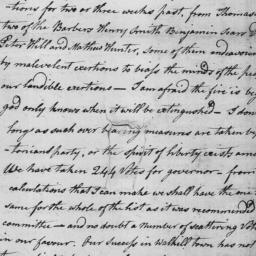 tions for two or three weeks past, from Thomas
two of the Barbers Henry Smith Benjamin
Peter Will and Mathew Hunter, Some of them endeavor
by malevolent exertions to biass the minds of the pe
our laudible exertions — I am afraid the fire is beg
god only knows when it will be extinguished — I don
long as such over bearing measures are taken by
tonians party, or the spirit of liberty exists am
We have taken 244 Votes for governor — from
calculations that I can make we shall have the one
same for the whole of the list as it was recommended
committee — and no doubt a number of scattering Vot
in our favour. Our Success in Wallkill town has not